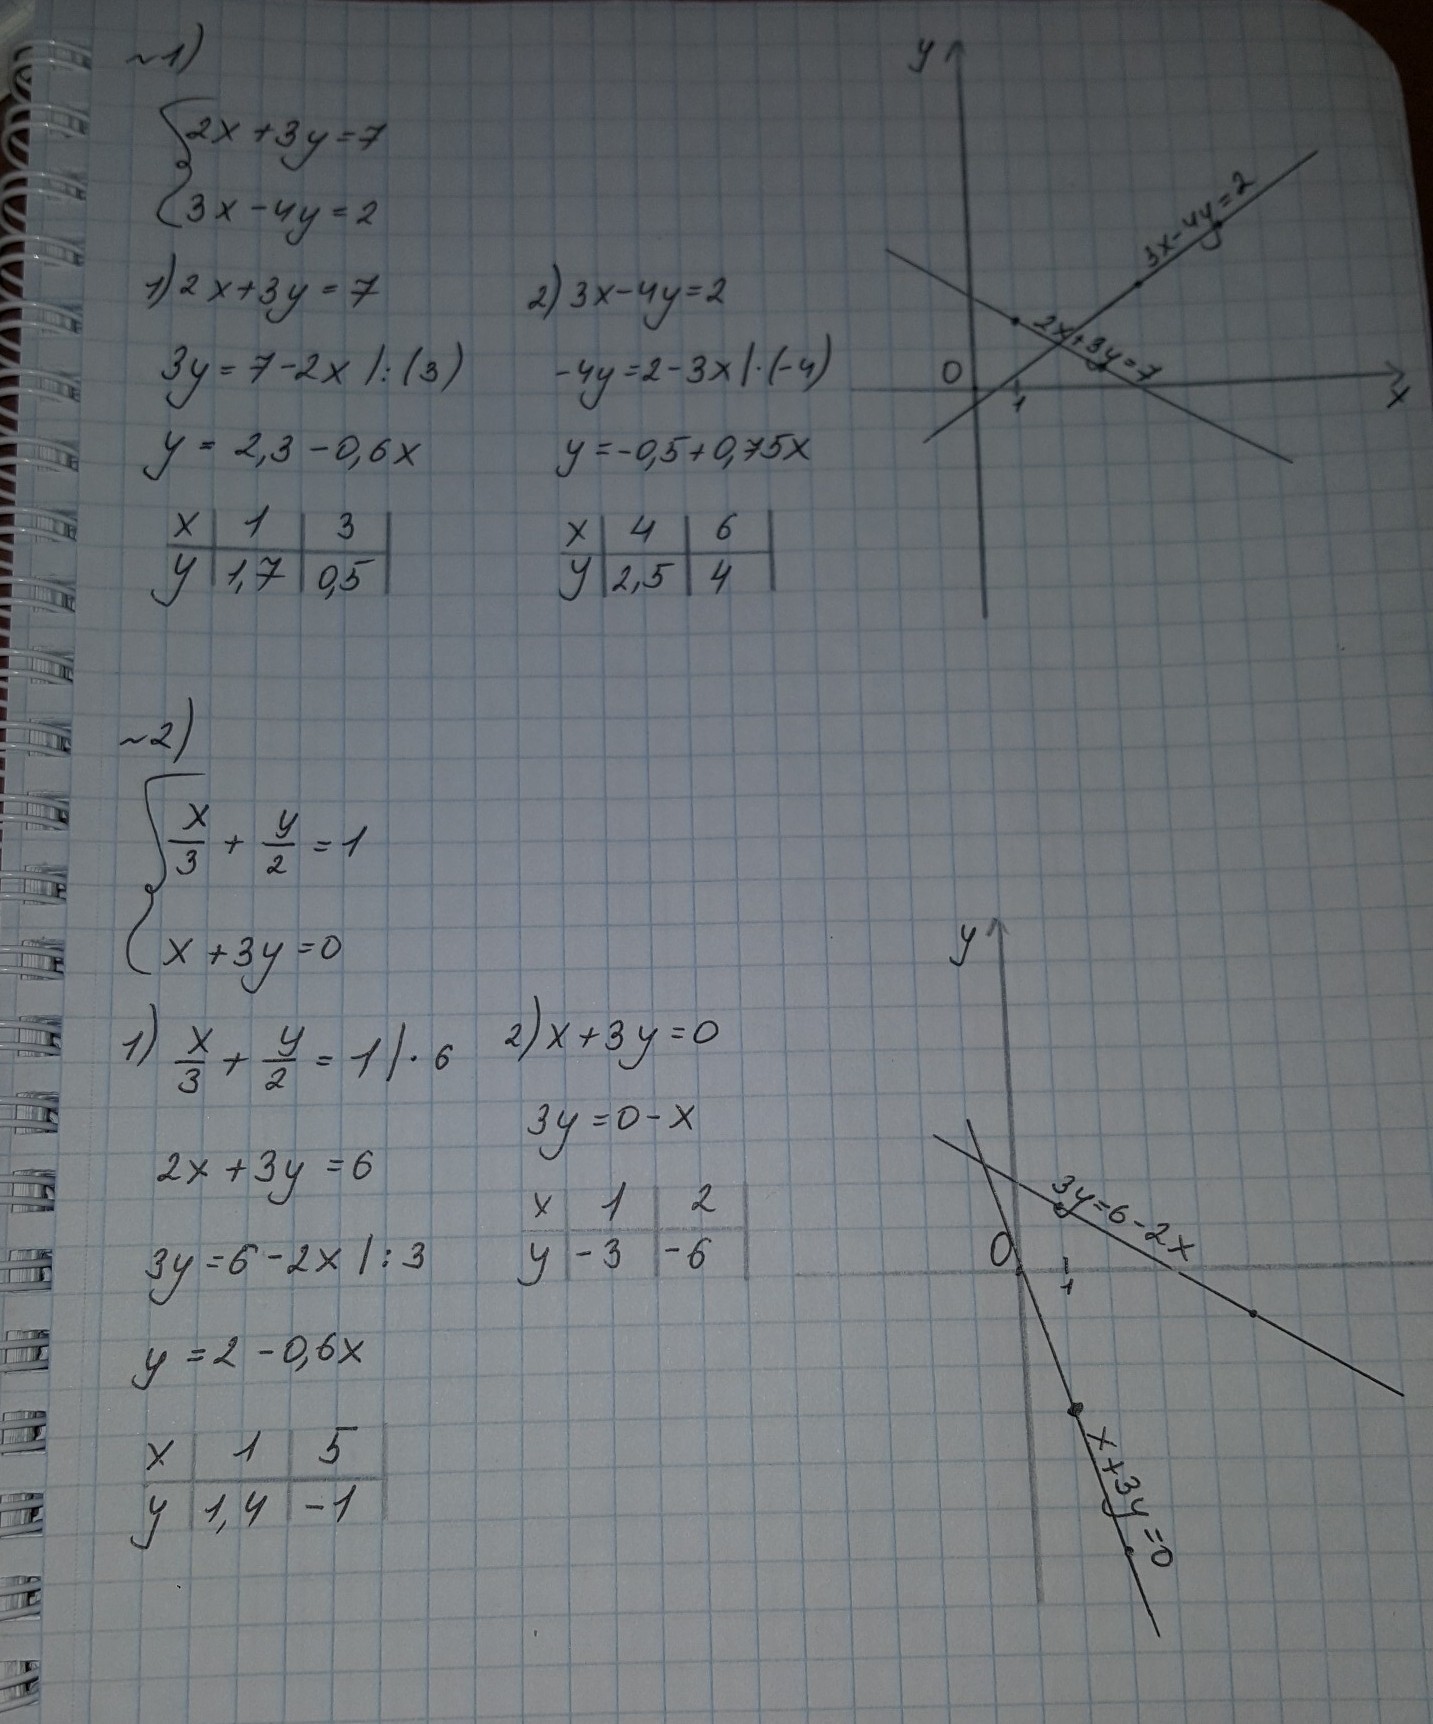 ~1)
{2x+3y=7
{3x-4y=2
1) 2x+3y=7
3y=7-2x |:(3)
y = 2,3-0,6x
x | 1 | 3 |
y | 1,7 | 0,5 |
2) 3x-4y=2
-4y=2-3x |·(-4)
y=-0,5+0,75x
x | 4 | 6 |
y | 2,5 | 4 |
y
3x-4y=2
2x+3y=7
0
1
x
~2)
{x/3 + y/2 = 1
{x+3y=0
1) x/3 + y/2 = 1 |· 6
2x+3y=6
3y=6-2x |:3
y=2-0,6x
x | 1 | 5
y | 1,4 | -1
2) x+3y=0
3y=0-x
x | 1 | 2
y | -3 | -6
y
3y=6-2x
0
1
x+3y=0